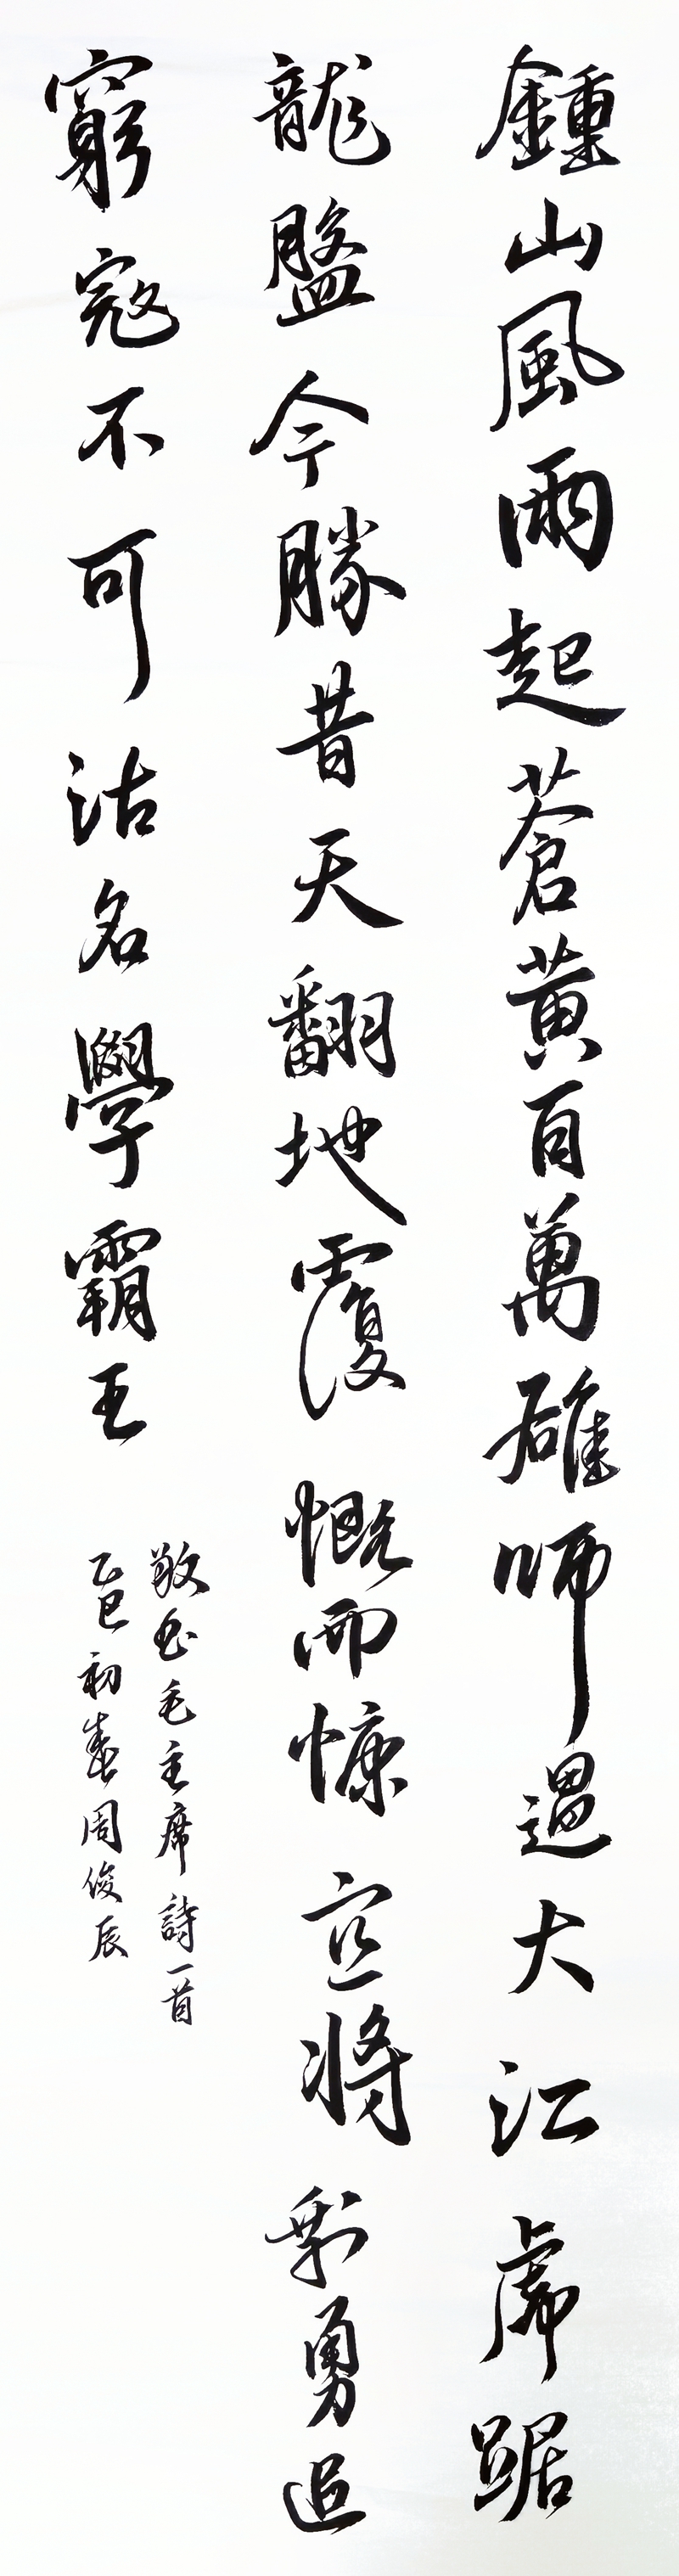 鍾山風雨起蒼黃百萬雄師過大江虎踞
龍盤今勝昔天翻地覆慨而慷宜將剩勇追
窮寇不可沽名學霸王
敬書毛主席詩一首
乙巳初春周俊辰